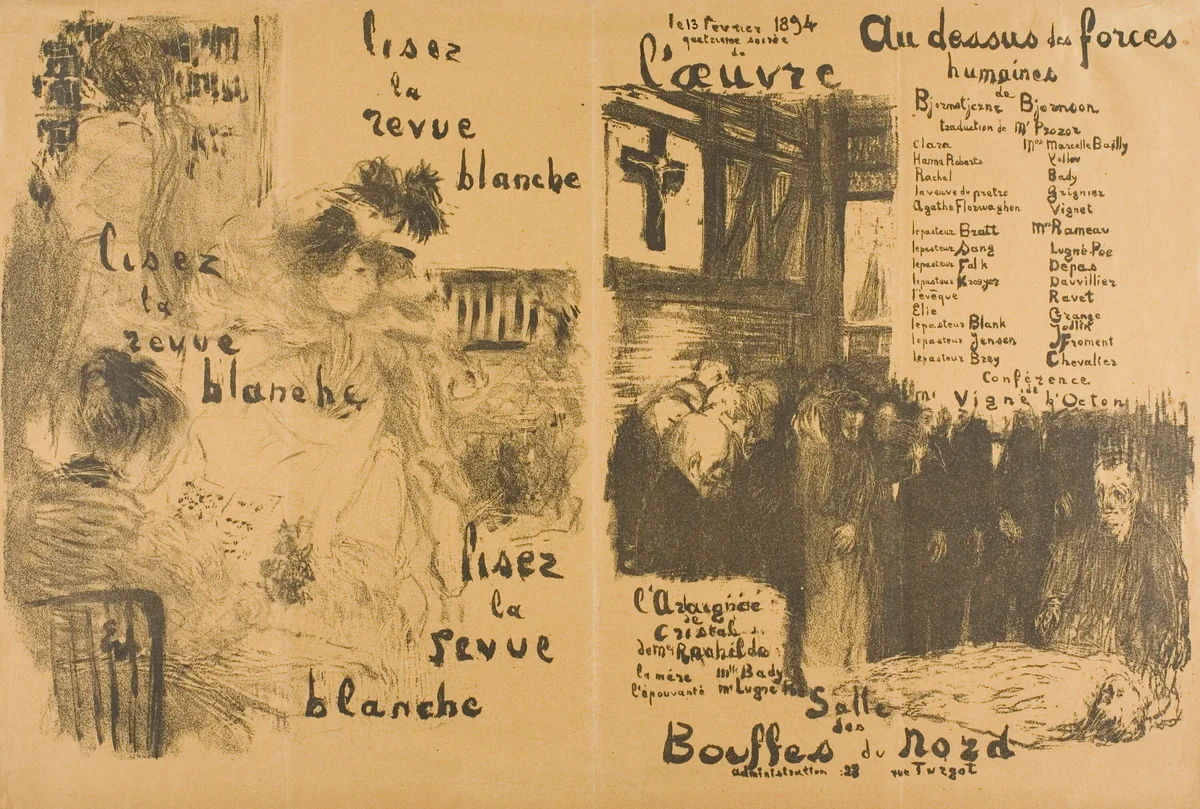 lisez
la
revue
blanche
lisez
la
revue
blanche
lisez
la
revue
blanche
EV
le 13 février 1894
quatrieme soirée
de
l'œuvre
Au dessus des forces
humaines
de
Bjornstjerne Bjornson
traduction de Mr Prozor
Clara Mes Marcelle Bailly
Hanna Roberts Yellov
Rachel Bady
la veuve du pretre Grignier
Agathe Florwaghen Vignet
le pasteur Bratt Mrs Rameau
le pasteur Sang Lugné-Poe
le pasteur Falk Depas
le pasteur Kroeyer Dauvillier
l'évêque Ravet
Elie Grange
le pasteur Blank
le pasteur Jensen Froment
le pasteur Brey Chevalier
Conférence
de
Mr Vigné d'Octon
l'Araignée
de
Cristal
de Me Rachilde
la mére Mlle Bady
l'épouvanté Mr Lugné Poe
Salle
des
Bouffes du Nord
administration :23 rue Turgot